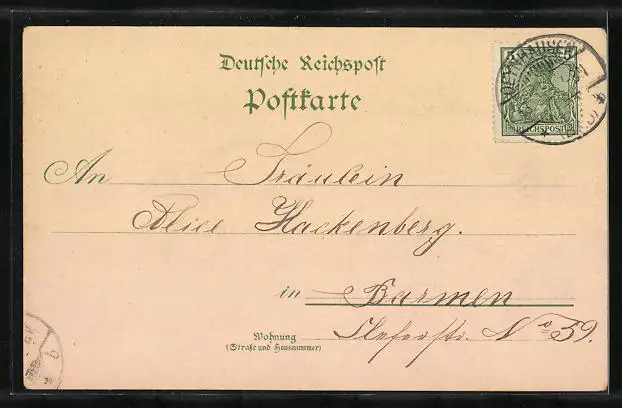 Deutsche Reichspost
Postkarte
REICHSPOST
An Fräulein
Alice Hackenberg.
in Barmen
Wohnung
(Straße und Hausnummer)
No 59.